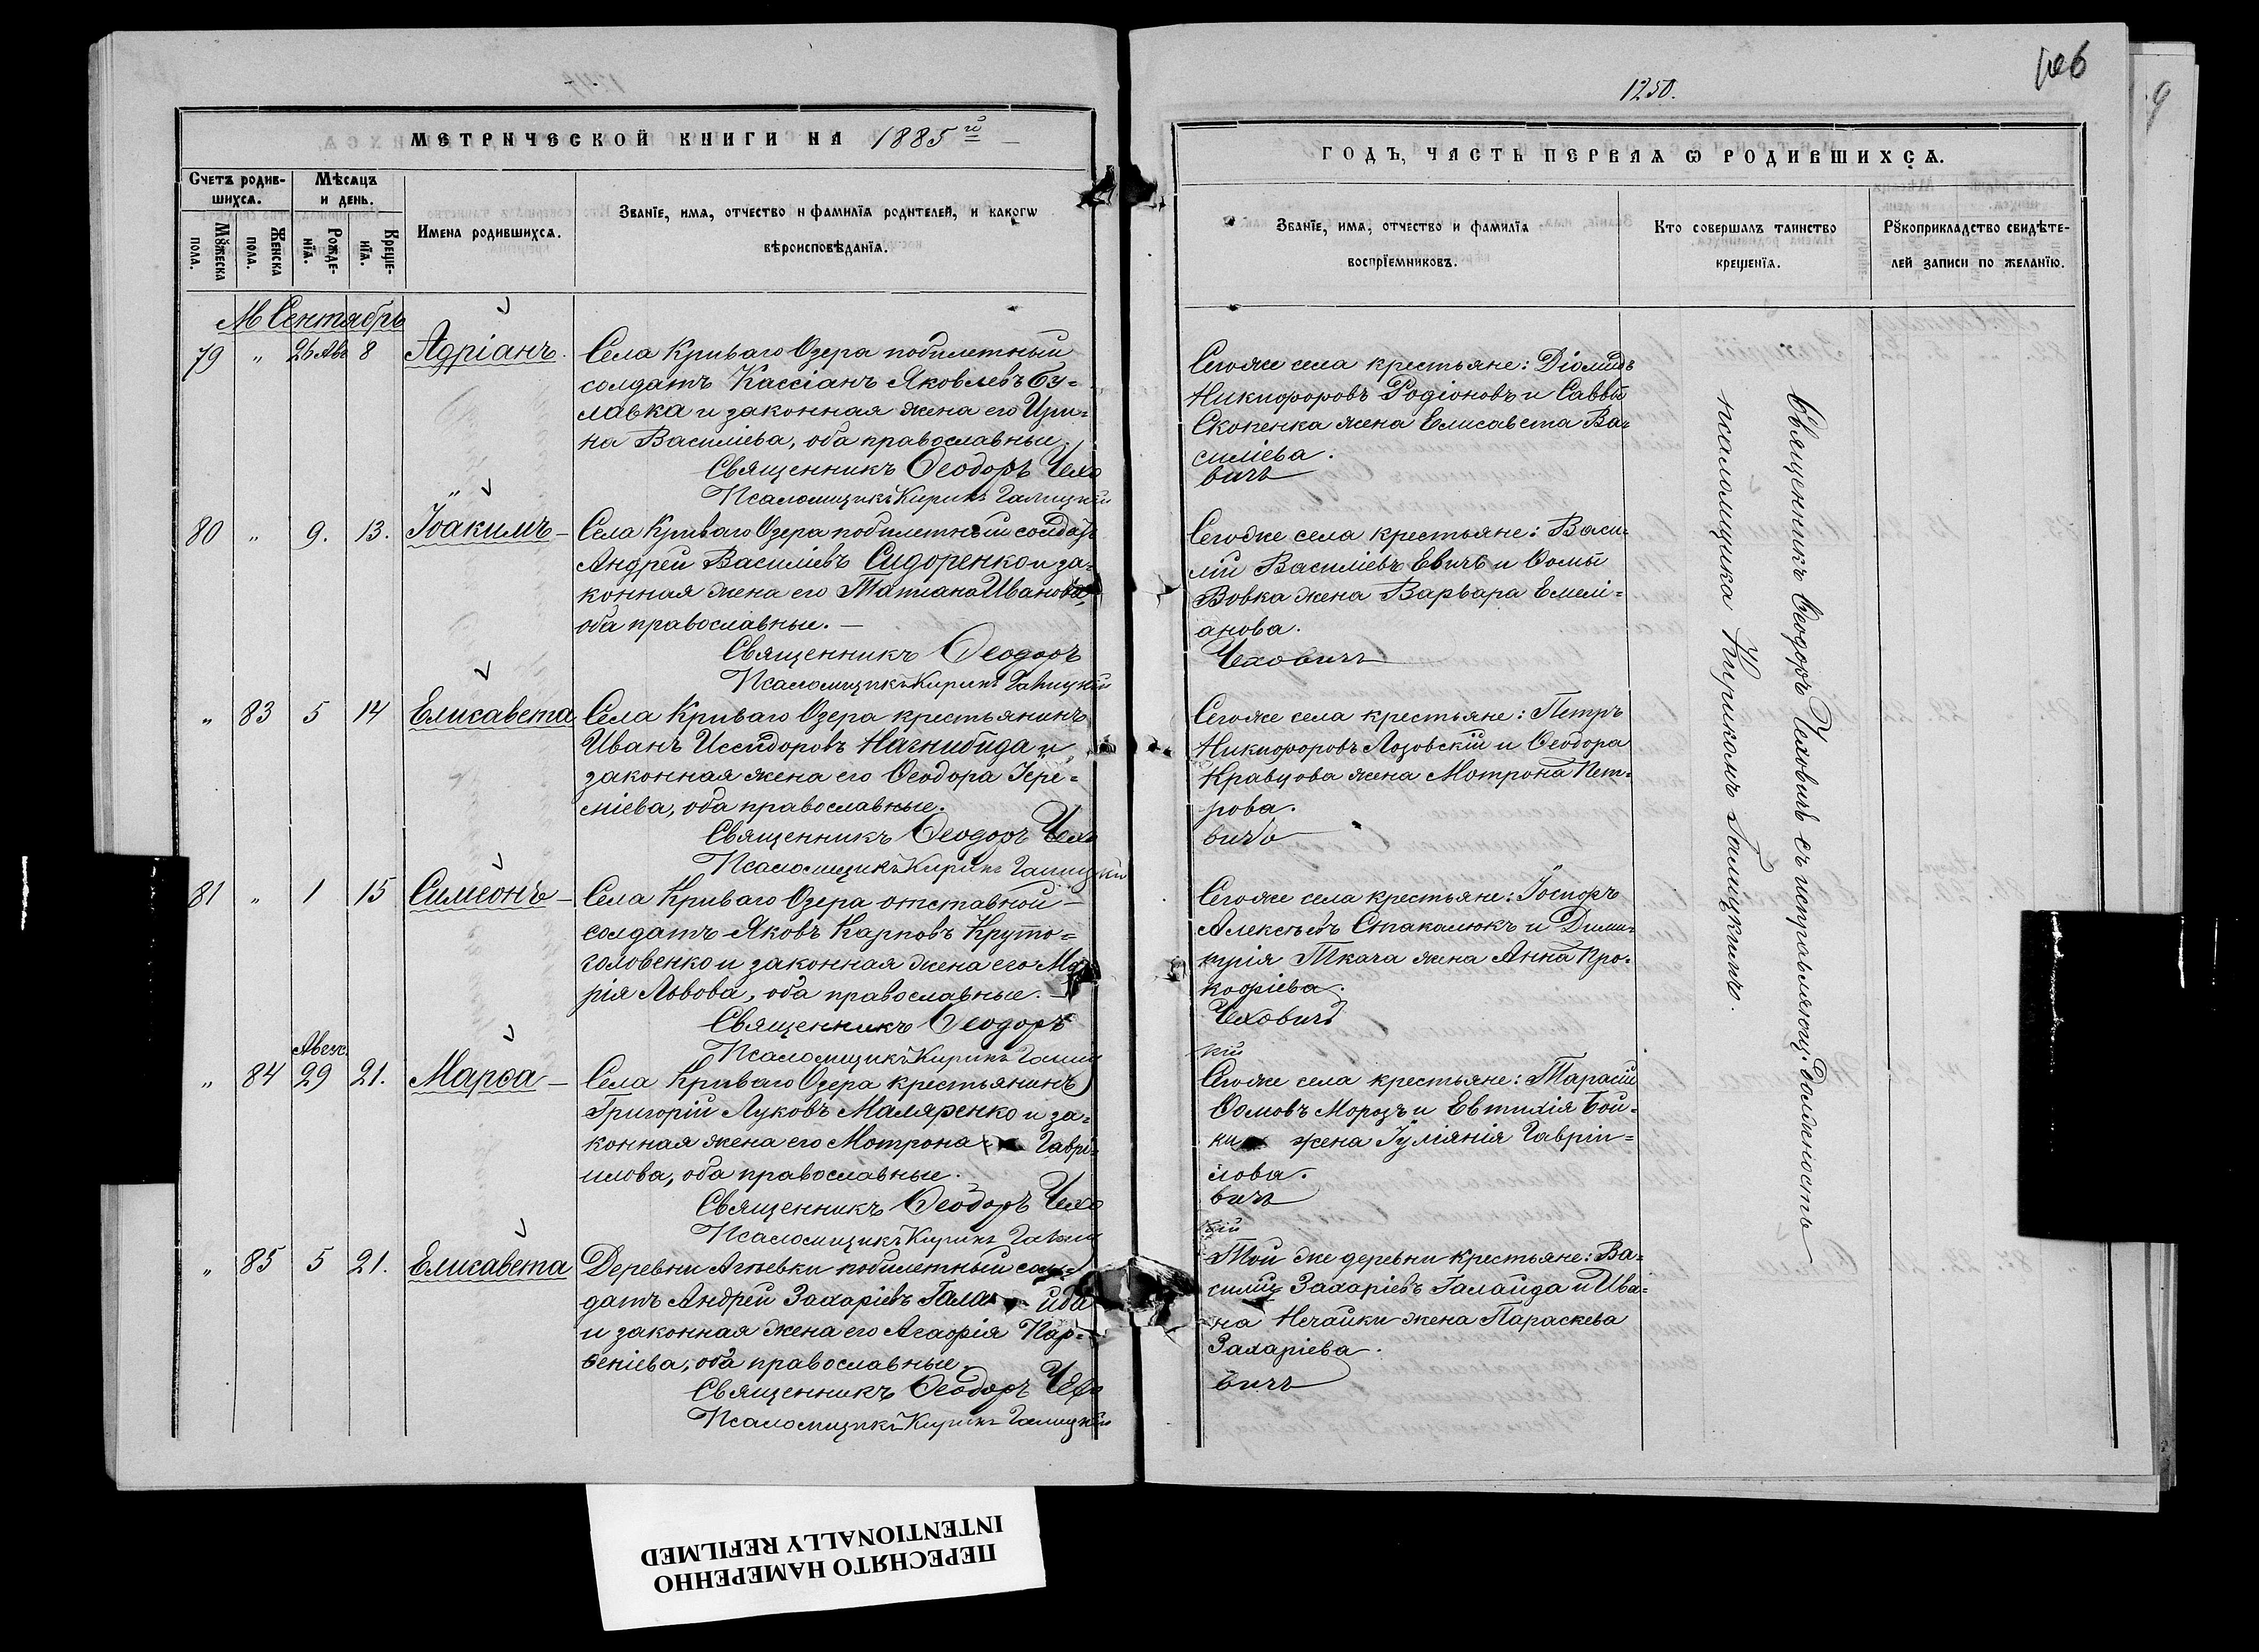 1250.
МЕТРИЧЕСКОЙ КНИГИ НА 1885 й
ГОДЪ, ЧАСТЬ ПЕРВАѦ Ѿ РОДИВШИХСѦ.
Счетъ родив-
шихсѧ.
Мѣсѧцъ
и день.
Мꙋжеска
пола.
Женска
пола.
Рожде-
нїѧ.
Креще-
нїѧ.
Имена родившихсѧ.
Званїе, имѧ, отчество и фамилїѧ родителей, и какогѡ
вѣроисповѣданїѧ.
Званїе, имѧ, отчество и фамилїѧ
воспрїемниковъ.
Кто совершалъ таинство
крещенїѧ.
Рꙋкоприкладство свидѣте-
лей записи по желанїю.
М Сентябрь
79 " 26 Авг 8 Адріанъ.
Села Криваго Озера побилетный
солдатъ Кассіанъ Яковлевъ Бу=
лавка и законная жена его Ири=
на Василіева, оба православные.
Священникъ Ѳеодоръ Чехо
Псаломщикъ Кирикъ Галицкій
Сегоже села крестьяне: Діомидъ
Никифоровъ Родіоновъ и Саввы
Скопенка жена Елисавета Ва=
силіева.
вичъ
80 " 9. 13. Іоакимъ –
Села Криваго Озера побилетный солдатъ
Андрей Василіевъ Сидоренко и за=
конная жена его Татіана Иванова,
оба православные. –
Священникъ Ѳеодоръ
Псаломщикъ Кирикъ Галицкій
Сегоже села крестьяне: Васи=
лій Василіевъ Евичъ и Ѳомы
Вовка жена Варвара Емелі=
анова.
Чеховичъ
" 83 5 14 Елисавета
Села Криваго Озера крестьянинъ
Иванъ Исидоровъ Нагнибида и
законная жена его Ѳеодора Іере=
міева, оба православные.
Священникъ Ѳеодоръ Чехо
Псаломщикъ Кирикъ Галицкій
Сегоже села крестьяне: Петръ
Никифоровъ Лозовскій и Ѳеодора
Кравцова жена Мотрона Пет=
рова.
вичъ
81 " 1 15 Симеонъ –
Села Криваго Озера отставной –
солдатъ Яковъ Карповъ Круто=
головенко и законная жена его Ма
рія Львова, оба православные. –
Священникъ Ѳеодоръ
Псаломщикъ Кирикъ Галиц
Сегоже села крестьяне: Іосифъ
Алексѣевъ Стакалюкъ и Дими=
трія Ткача жена Анна Про=
кофіева.
Чеховичъ
кій
Авгус.
" 84 29 21. Марѳа –
Села Криваго Озера крестьянинъ
Григорій Луковъ Маляренко и за=
конная жена его Мотрона Гаврі=
илова, оба православные.
Священникъ Ѳеодоръ Чехо
Псаломщикъ Кирикъ Галиц
Сегоже села крестьяне: Тарасій
Ѳомовъ Морозъ и Евтихія Бой=
ки жена Іуліанія Гавріи=
лова.
вичъ
кій
" 85 5 21. Елисавета
Деревни Агѣевки побилетный сол=
датъ Андрей Захаріевъ Гала йда
и законная жена его Агафія Пар=
ѳеніева, оба православные.
Священникъ Ѳеодоръ Чехо
Псаломщикъ Кирикъ Галицкій
Той же деревни крестьяне: Ва=
силій Захаріевъ Галайда и Ива=
на Нечайки жена Параскева
Захаріева.
вичъ
Священникъ Ѳеодоръ Чеховичъ съ исправляющ. должность
псаломщика Кирикомъ Галицкимъ.
ПЕРЕСНЯТО НАМЕРЕННО
INTENTIONALLY REFILMED